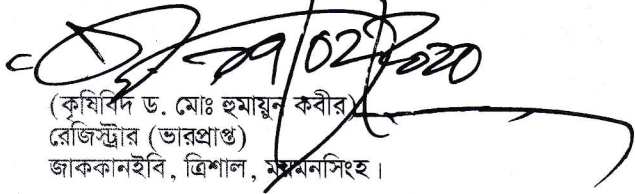 ২৭/02/2020
(কৃষিবিদ ড. মোঃ হুমায়ুন কবীর)
রেজিস্ট্রার (ভারপ্রাপ্ত)
জাককানইবি, ত্রিশাল, ময়মনসিংহ।